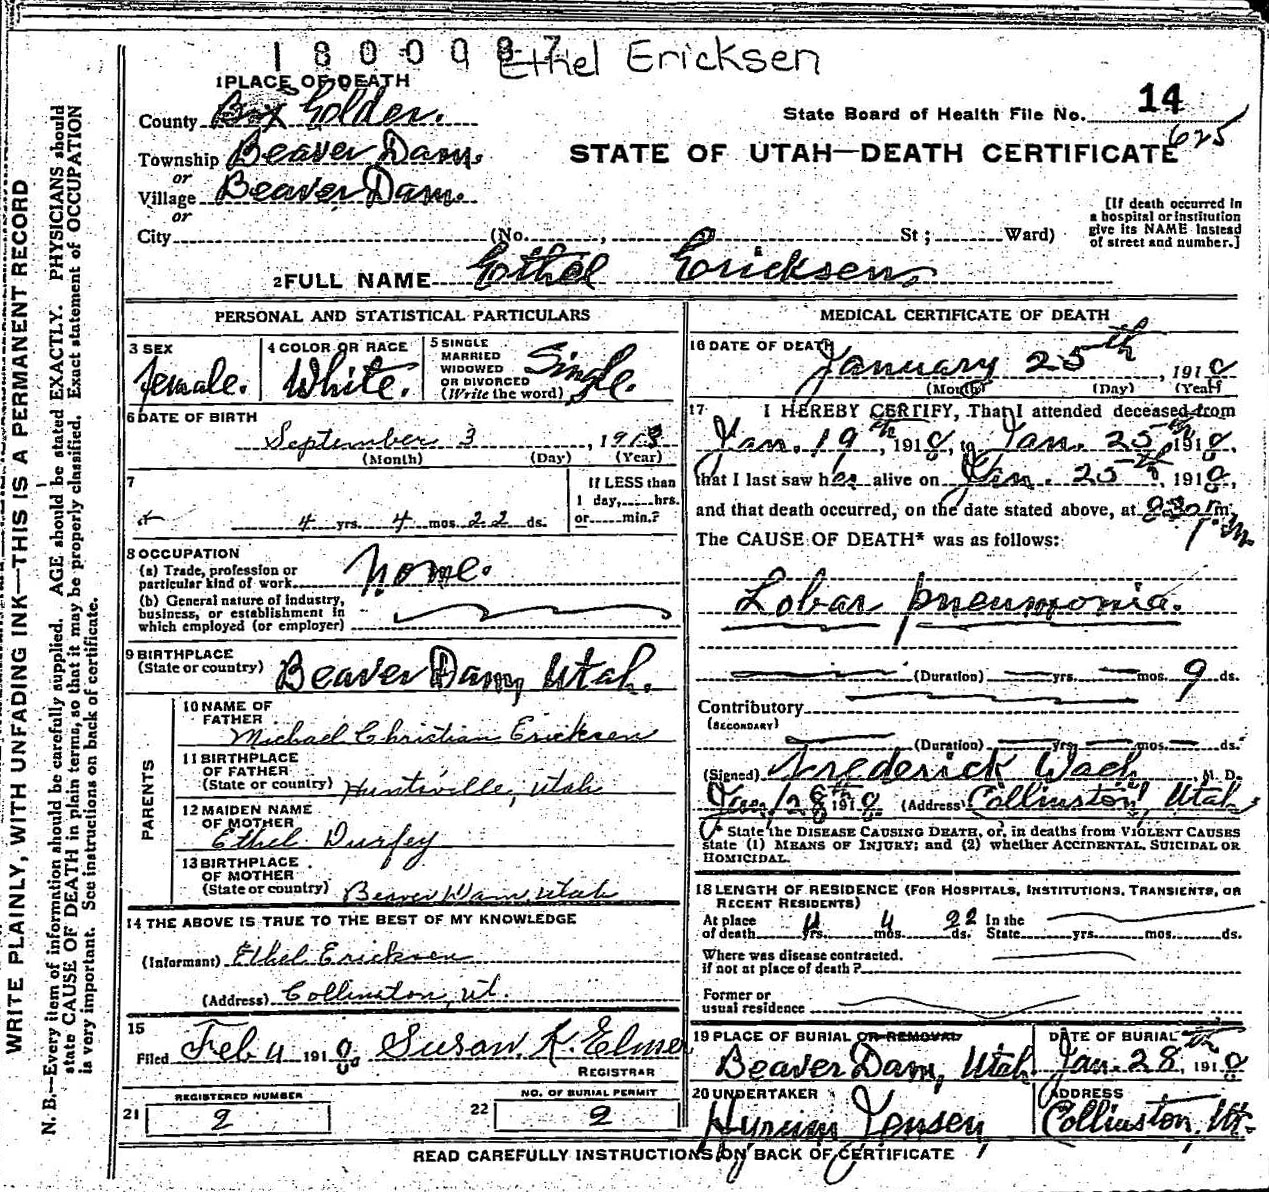 1800087 Ethel Ericksen
1 PLACE OF DEATH
County Box Elder.
State Board of Health File No. 14
625
Township Beaver Dam.
or
STATE OF UTAH—DEATH CERTIFICATE
Village Beaver Dam.
or
City (No. , St; Ward)
[If death occurred in
a hospital or institution
give its NAME instead
of street and number.]
2 FULL NAME Ethel Ericksen,
PERSONAL AND STATISTICAL PARTICULARS
3 SEX
female.
4 COLOR OR RACE
White.
5 SINGLE
MARRIED
WIDOWED
OR DIVORCED
(Write the word)
Single.
6 DATE OF BIRTH
September 3, 1913
(Month) (Day) (Year)
7
4 yrs. 4 mos. 22 ds.
If LESS than
1 day, hrs.
or min.?
8 OCCUPATION
(a) Trade, profession or
particular kind of work None.
(b) General nature of industry,
business, or establishment in
which employed (or employer)
9 BIRTHPLACE
(State or country) Beaver Dam, Utah.
PARENTS
10 NAME OF
FATHER
Michael Christian Ericksen
11 BIRTHPLACE
OF FATHER
(State or country) Huntsville, Utah
12 MAIDEN NAME
OF MOTHER
Ethel Durfey
13 BIRTHPLACE
OF MOTHER
(State or country) Beaver Dam, Utah
14 THE ABOVE IS TRUE TO THE BEST OF MY KNOWLEDGE
(Informant) Ethel Ericksen
(Address) Collinston, Ut.
15
Filed Feb 4 1918. Susan K. Elmer
REGISTRAR
21 REGISTERED NUMBER
2
22 NO. OF BURIAL PERMIT
2
MEDICAL CERTIFICATE OF DEATH
16 DATE OF DEATH
January 25th, 1918
(Month) (Day) (Year)
17 I HEREBY CERTIFY, That I attended deceased from
Jan. 19th, 1918, to Jan. 25th 1918,
that I last saw her alive on Jan. 25th, 1918,
and that death occurred, on the date stated above, at 8:30 P.m.
P.M
The CAUSE OF DEATH* was as follows:
Lobar pneumonia.
(Duration) yrs. mos. 9 ds.
Contributory
(SECONDARY)
(Duration) yrs. mos. ds.
(Signed) Frederick Wach, M. D.
Jan. 28th 1918 (Address) Collinston, Utah
* State the DISEASE CAUSING DEATH, or, in deaths from VIOLENT CAUSES
state (1) MEANS OF INJURY; and (2) whether ACCIDENTAL, SUICIDAL OR
HOMICIDAL.
18 LENGTH OF RESIDENCE (FOR HOSPITALS, INSTITUTIONS, TRANSIENTS, OR
RECENT RESIDENTS)
At place
of death 4 yrs. 4 mos. 22 ds. In the
State yrs. mos. ds.
Where was disease contracted.
if not at place of death?
Former or
usual residence
19 PLACE OF BURIAL OR REMOVAL
Beaver Dam, Utah
DATE OF BURIAL
Jan. 28th, 1918
20 UNDERTAKER
Hyrum Jensen,
ADDRESS
Collinston, Ut.
READ CAREFULLY INSTRUCTIONS ON BACK OF CERTIFICATE
WRITE PLAINLY, WITH UNFADING INK—THIS IS A PERMANENT RECORD
N. B.—Every item of information should be carefully supplied. AGE should be stated EXACTLY. PHYSICIANS should
state CAUSE OF DEATH in plain terms, so that it may be properly classified. Exact statement of OCCUPATION
is very important. See instructions on back of certificate.